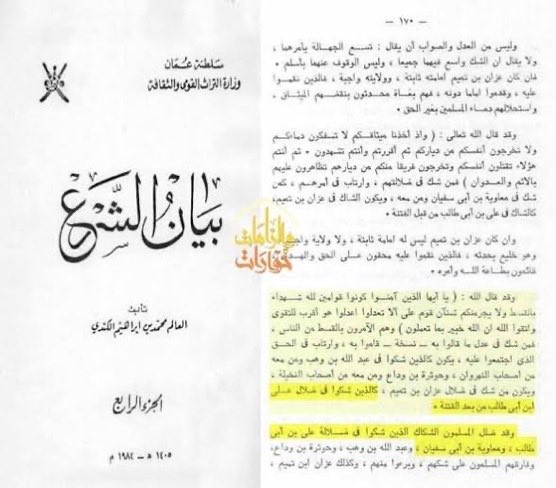 سلطنة عُمان
وزارة التراث القومى والثقافة
بيان الشرع
تأليف
العالم محمد بن ابراهيم الكندى
الجزء الرابع
١٤٠٥ هـ – ١٩٨٤ م
– ١٧٠ –
وليس من العدل والصواب أن يقال : تسع الجهالة بأمرهما ،
ولا يقال ان الشك واسع فيهما جميعا ، وليس الوقوف عنهما بأسلم .
فان كان عزان بن تميم امامته ثابتة ، وولايته واجبة ، فالذين نقموا
عليه ، وقدموا اماما دونه ، فهم بغاة محدثون بنقضهم الميثاق ،
واستحلالهم دماء المسلمين بغير الحق .
وقد قال الله تعالى : ( واذ أخذنا ميثاقكم لا تسفكون دماءكم
ولا تخرجون أنفسكم من دياركم ثم أقررتم وأنتم تشهدون . ثم أنتم
هؤلاء تقتلون أنفسكم وتخرجون فريقا منكم من ديارهم تظاهرون عليهم
بالاثم والعدوان ) فمن شك فى ضلالتهم ، وارتاب فى أمرهم ، كمن
شك فى معاوية بن أبى سفيان ومن معه ، ويكون الشاك فى عزان بن تميم
كالشاك فى على بن أبى طالب من قبل الفتنة .
وان كان عزان بن تميم ليس له امامة ثابتة ، ولا ولاية
وهو خليع بحدثه ، فالذين نقموا عليه محقون على الحق
قائمون بطاعة الله وأمره .
وقد قال الله : ( يا أيها الذين آمنوا كونوا قوامين لله شهداء
بالقسط ولا يجرمنكم شنآن قوم على ألا تعدلوا اعدلوا هو أقرب للتقوى
واتقوا الله ان الله خبير بما تعملون ) وهم الآمرون بالقسط من الناس ،
فمن شك فى عدل ما قالوا به – نسخة – قاموا به ، وارتاب فى الحق
الذى اجتمعوا عليه ، يكون كالذين شكوا فى عبد الله بن وهب ومن معه
من أصحاب النهروان ، وحوثرة بن وداع ومن معه من أصحاب النخيلة ،
ويكون من شك فى ضلال عزان بن تميم ، كالذين شكوا فى ضلال على
ابن أبى طالب من بعد الفتنة .
وقد ضلل المسلمون الشكاك الذين شكوا فى ضلالة على بن أبى
طالب ، ومعاوية بن أبى سفيان ، وعبد الله بن وهب ، وحوثرة بن وداع ،
وفارقهم المسلمون على شكهم ، وبرءوا منهم ، وكذلك عزان ابن تميم ،